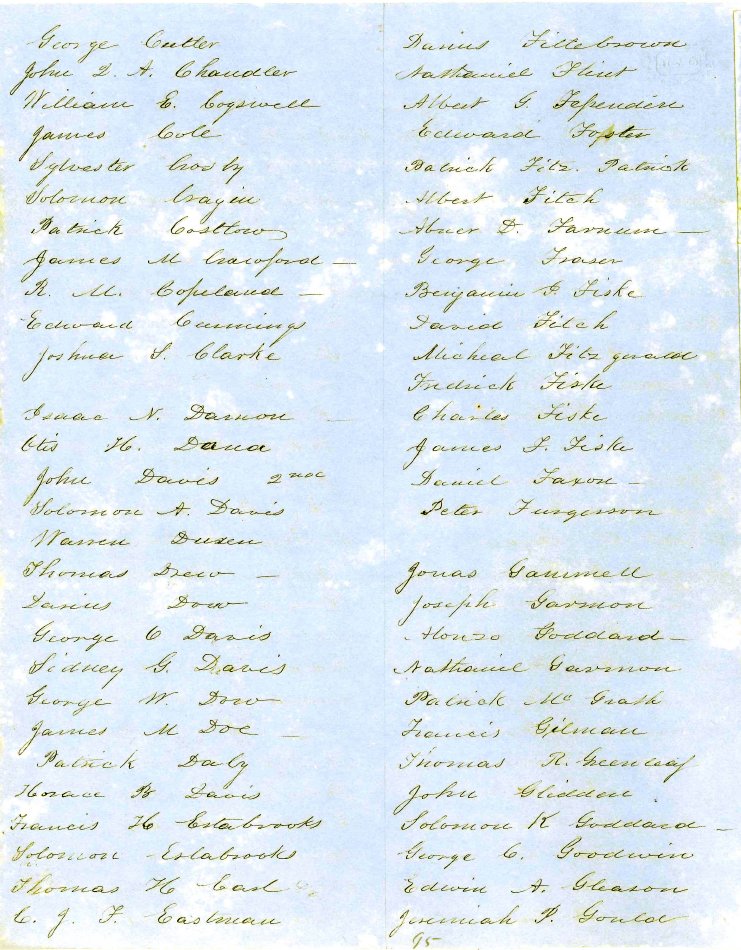 George Cutler
John Q. A. Chandler
William E. Cogswell
James Cole
Sylvester Crosby
Solomon Cragin
Patrick Costlow
James M Crawford —
R. M. Copeland —
Edward Cummings
Joshua S. Clarke
Isaac N. Damon —
Otis H. Dana
John Davis 2nd
Solomon A. Davis
Warren Duren
Thomas Drew —
Darius Dow
George C Davis
Sidney G. Davis
George W. Dow
James M Doe —
Patrick Daly
Horace B Davis
Francis H Estabrooks
Solomon Estabrooks
Thomas H Earl
C. J. F. Eastman
Darius Fillebrown
Nathaniel Flint
Albert G. Fependen
Edward Foster
Patrick Fitz. Patrick
Albert Fitch
Abner D. Farnum —
George Fraser
Benjamin G. Fiske
David Fitch
Micheal Fitzgerald
Fredrick Fiske
Charles Fiske
James F. Fiske
Daniel Faxon —
Peter Furgerson
Jonas Gammell
Joseph Garmon
Alonzo Goddard —
Nathaniel Garmon
Patrick McGrath
Francis Gilman
Thomas R. Greenleaf
John Glidden
Solomon K Goddard —
George C. Goodwin
Edwin A. Gleason
Jeremiah P. Gould
95